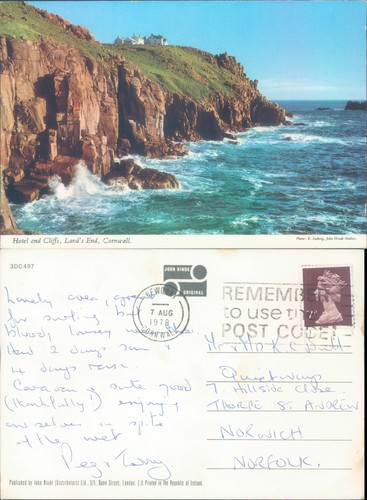 Hotel and Cliffs, Land's End, Cornwall.
Photo: E. Ludwig, John Hinde Studios.
3DC497
JOHN HINDE
ORIGINAL
7 AUG
1978
CORNWALL
REMEMBER
to use the
POST CODE
Lovely area, great
for surfing but
bloody lousey
Had 2 days sun
4 days rain.
Caravan site good
(thankfully!) enjoying
ourselves in spite
of the wet
Mr & Mrs K C
7 Hillside Close
THORPE St. ANDREW
NORWICH
NORFOLK.
Published by John Hinde (Distributors) Ltd., London. Printed in the Republic of Ireland.